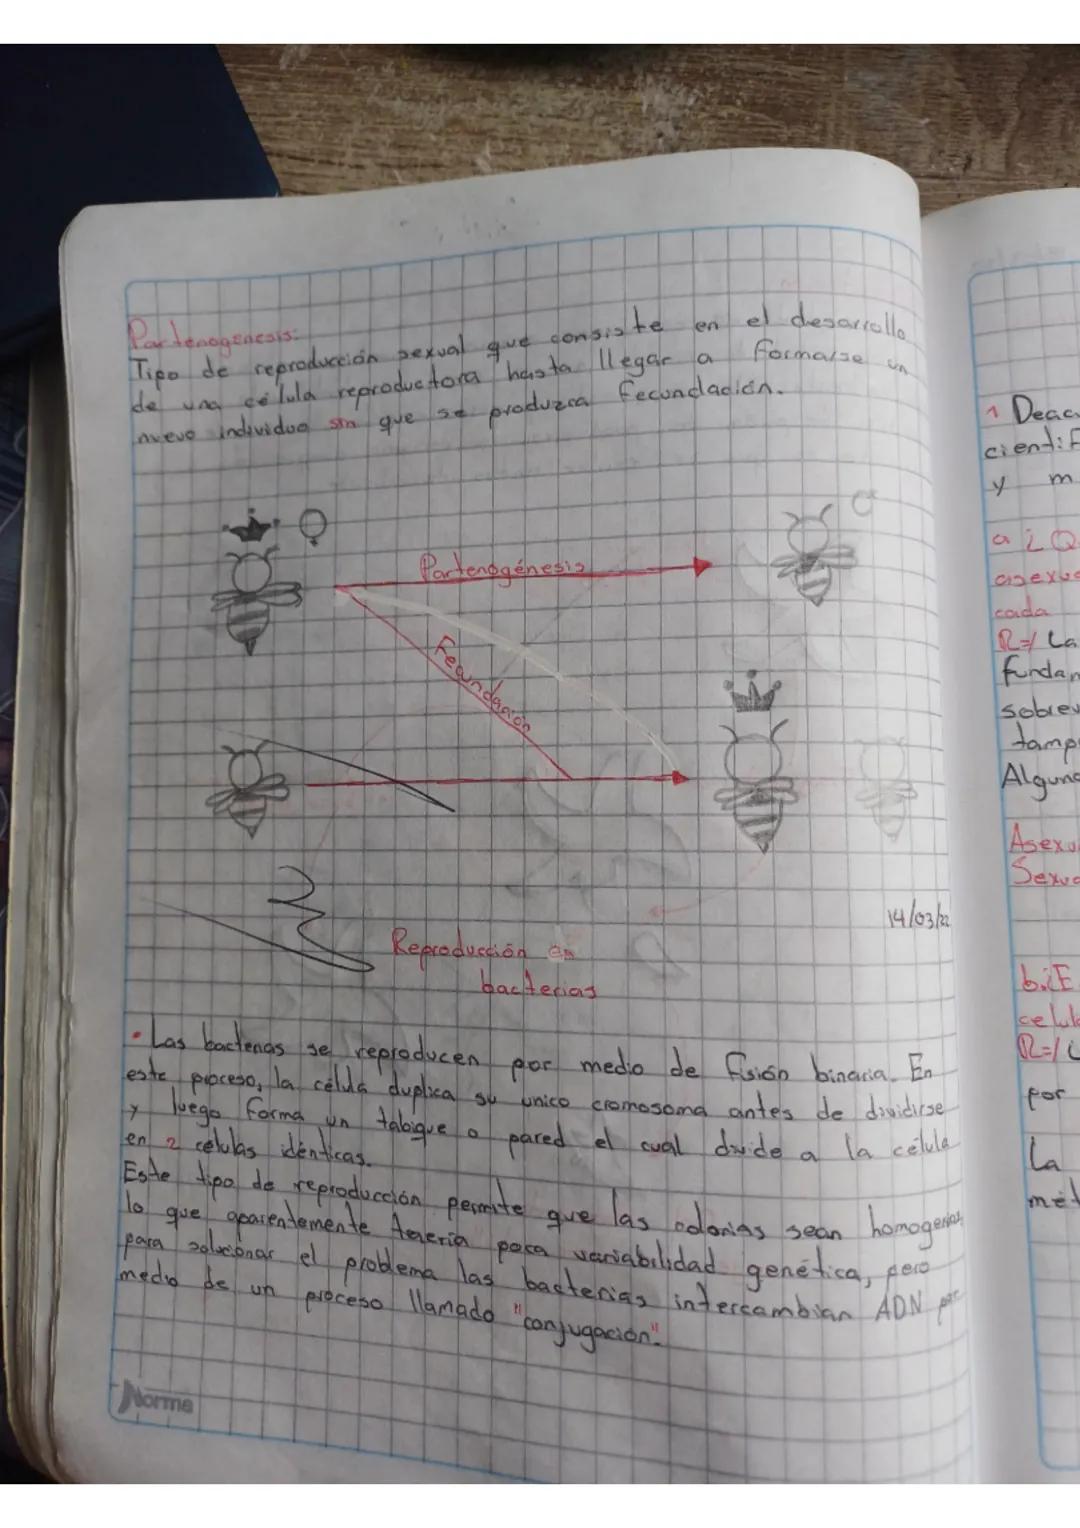 Partenogenesis:
Tipo de reproducción sexual que consiste en el desarrollo
de una célula reproductora hasta llegar a formarse un
nuevo individuo sin que se produzca fecundación.
Partenogénesis
Fecundación
14/03/22
Reproducción en
bacterias
• Las bacterias se reproducen por medio de fisión binaria. En
este proceso, la célula duplica su unico cromosoma antes de dividirse
y luego forma un tabique o pared el cual divide a la célula
en 2 células idénticas.
Este tipo de reproducción permite que las colonias sean homogenias,
lo que aparentemente tenería poca variabilidad genética, pero
para solucionar el problema las bacterias intercambian ADN por
medio de un proceso llamado "conjugación".
Norma
1 Deacu
cientif
y m
a ¿Q
asexua
cada
R=/ La
fundam
sobrev
tamp
Alguna
Asexu
Sexua
b. ¿E
celula
R=/
por
La
mét